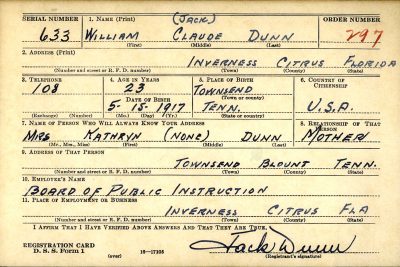 SERIAL NUMBER 1. NAME (Print) (JACK.) ORDER NUMBER
633 WILLIAM CLAUDE DUNN 297
(First) (Middle) (Last)
2. ADDRESS (Print)
INVERNESS CITRUS FLORIDA
(Number and street or R. F. D. number) (Town) (County) (State)
3. TELEPHONE 4. AGE IN YEARS 5. PLACE OF BIRTH 6. COUNTRY OF CITIZENSHIP
108 23 TOWNSEND
(Town or county)
DATE OF BIRTH
5-15-1917 TENN. U.S.A.
(Exchange) (Number) (Mo.) (Day) (Yr.) (State or country)
7. NAME OF PERSON WHO WILL ALWAYS KNOW YOUR ADDRESS 8. RELATIONSHIP OF THAT PERSON
MRS KATHRYN (NONE) DUNN MOTHER
(Mr., Mrs., Miss) (First) (Middle) (Last)
9. ADDRESS OF THAT PERSON
TOWNSEND BLOUNT TENN.
(Number and street or R. F. D. number) (Town) (County) (State)
10. EMPLOYER'S NAME
BOARD OF PUBLIC INSTRUCTION
11. PLACE OF EMPLOYMENT OR BUSINESS
INVERNESS CITRUS FLA
(Number and street or R. F. D. number) (Town) (County) (State)
I AFFIRM THAT I HAVE VERIFIED ABOVE ANSWERS AND THAT THEY ARE TRUE.
REGISTRATION CARD
D. S. S. Form 1 (over) 16—17105 Jack Dunn
(Registrant's signature)